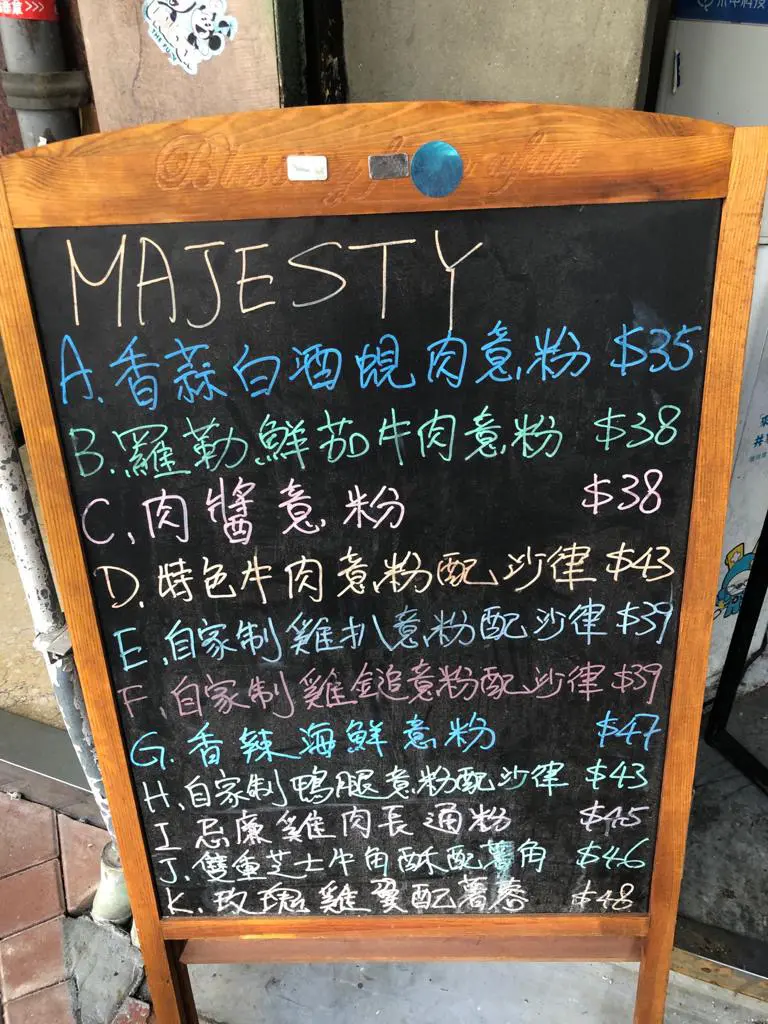 MAJESTY
A.香蒜白酒蜆肉意粉 $35
B.羅勒鮮茄牛肉意粉 $38
C.肉醬意粉 $38
D.特色牛肉意粉配沙律 $43
E.自家制雞扒意粉配沙律 $39
F.自家制雞鎚意粉配沙律 $39
G.香辣海鮮意粉 $47
H.自家制鴨腿意粉配沙律 $43
I忌廉雞肉長通粉 $45
J.雙重芝士牛角酥配薯角 $46
K.玫瑰雞翼配薯蓉 $48